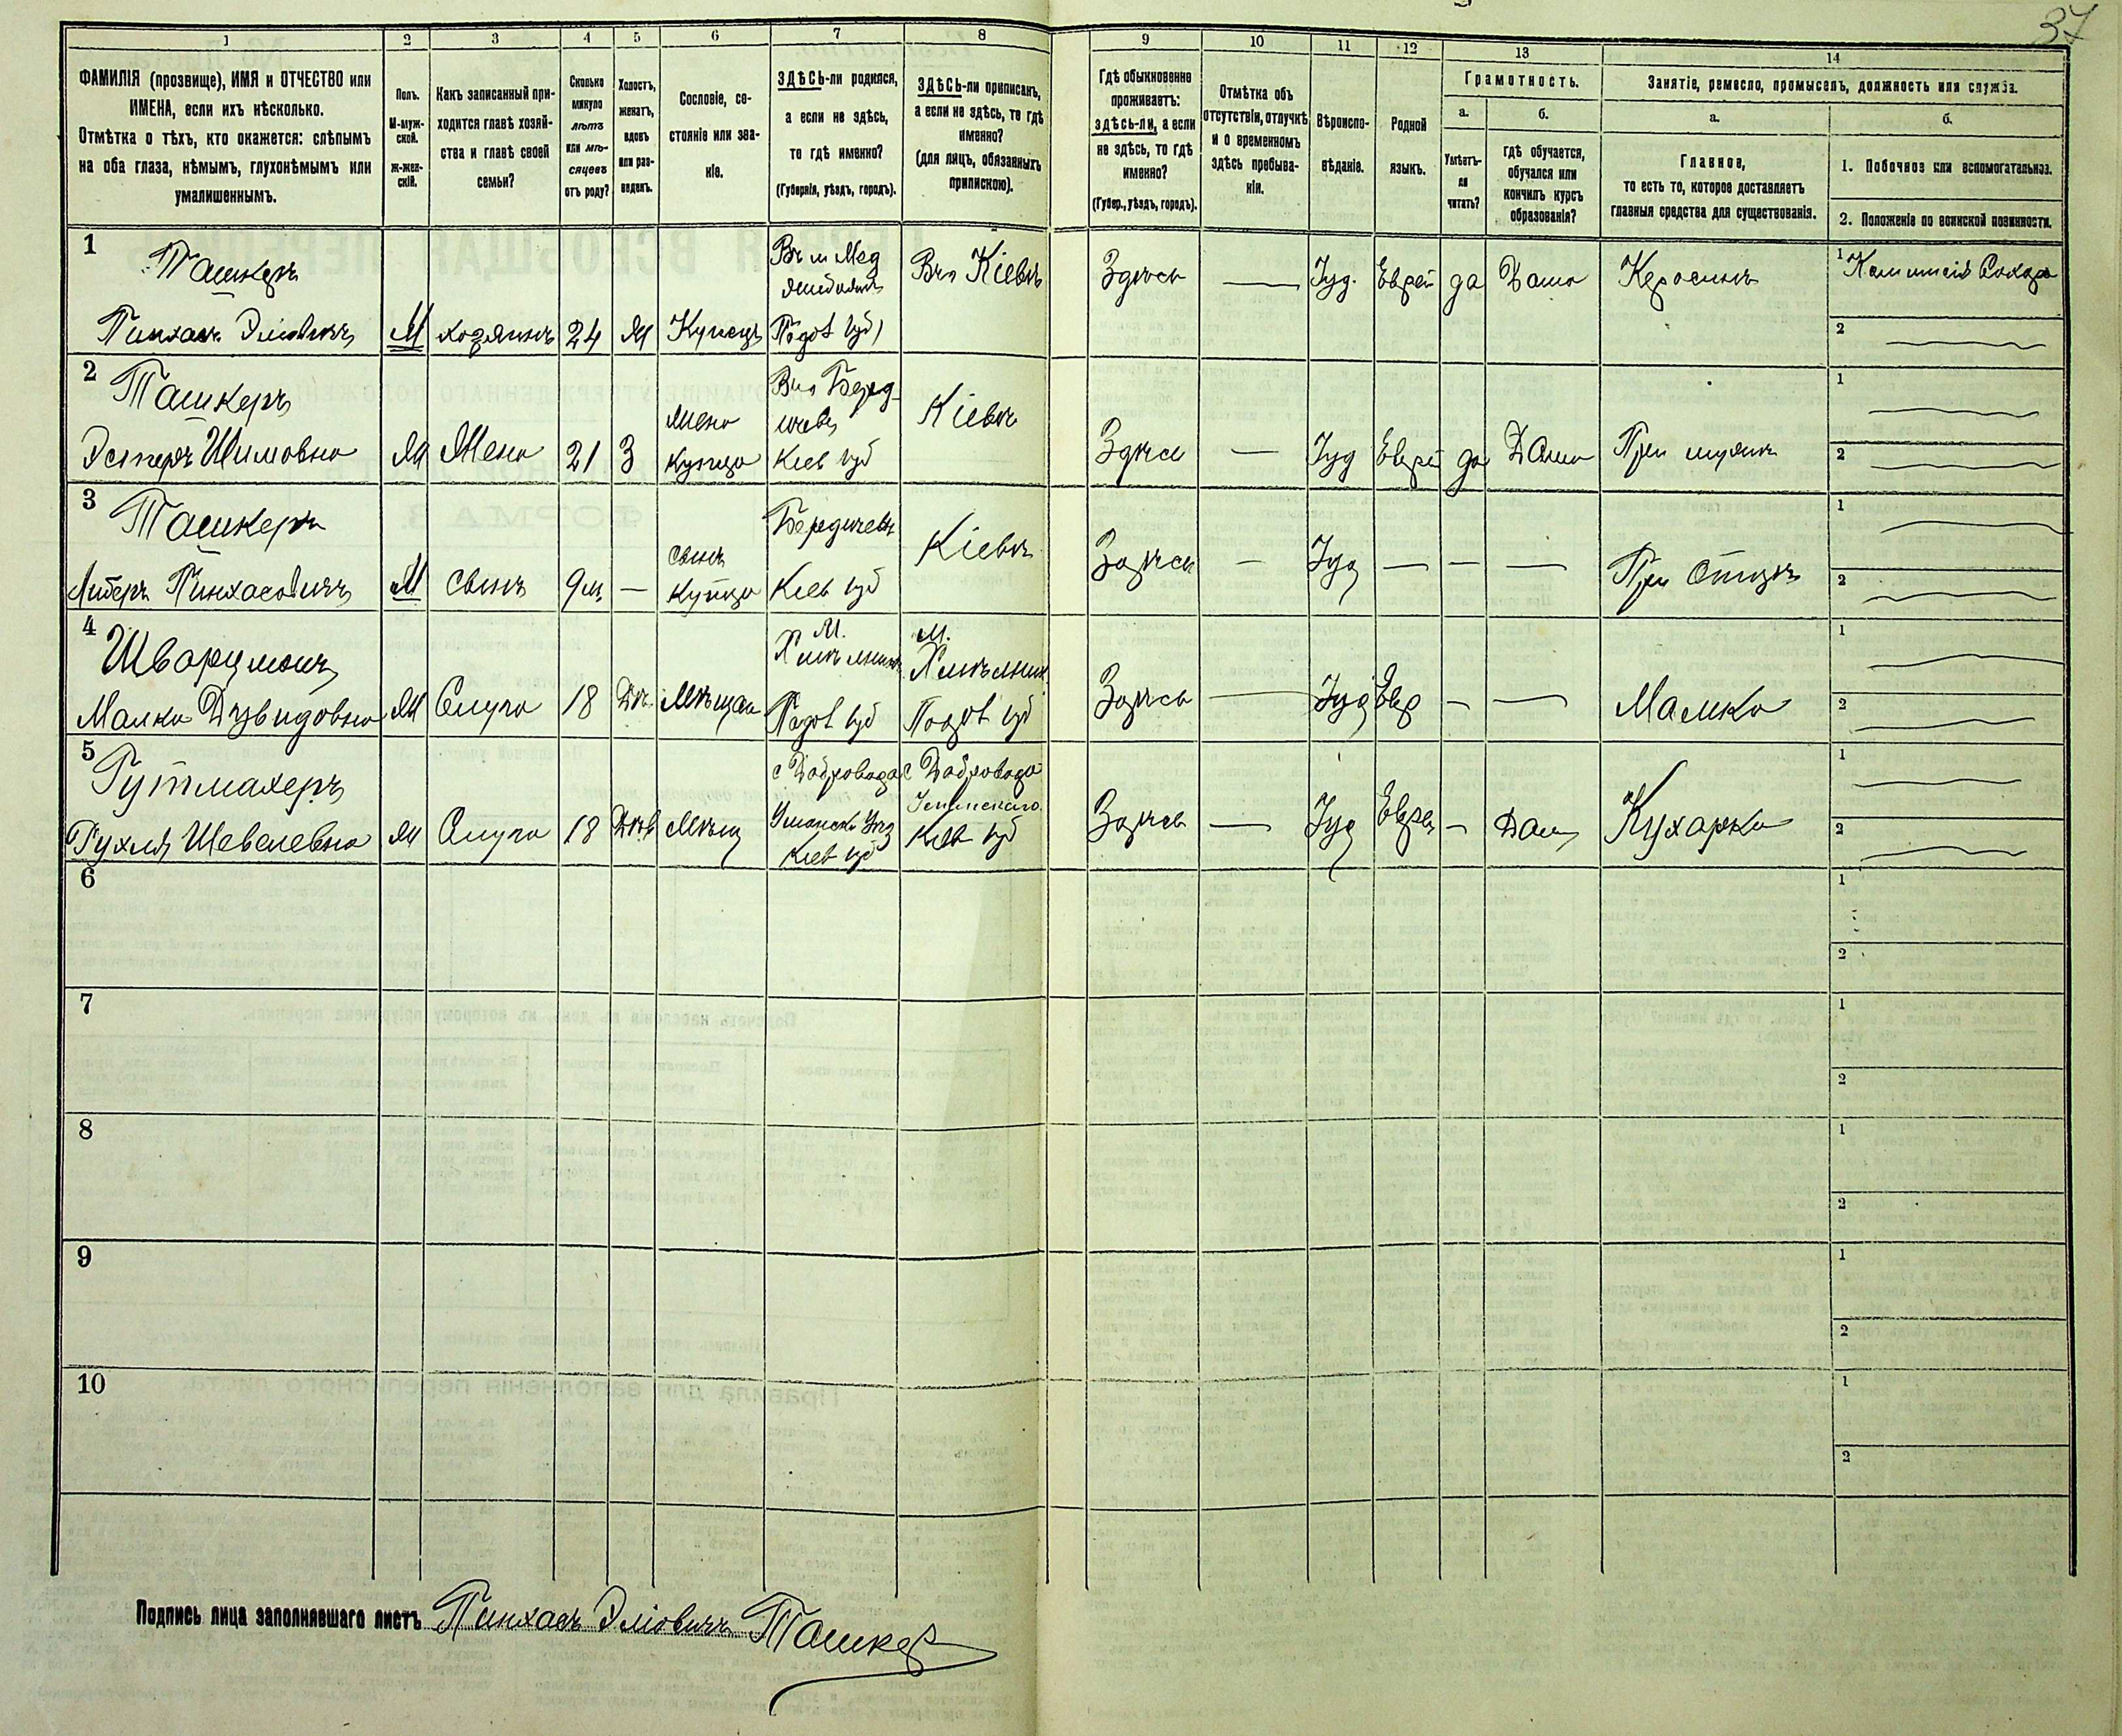 37
1 2 3 4 5 6 7 8 9 10 11 12 13 14
ФАМИЛІЯ (прозвище), ИМЯ и ОТЧЕСТВО или
ИМЕНА, если ихъ нѣсколько.
Отмѣтка о тѣхъ, кто окажется: слѣпымъ
на оба глаза, нѣмымъ, глухонѣмымъ или
умалишеннымъ.
Полъ.
М-муж-
ской.
ж-жен-
скій.
Какъ записанный при-
ходится главѣ хозяй-
ства и главѣ своей
семьи?
Сколько
минуло
лѣтъ
или мѣ-
сяцевъ
отъ роду?
Холостъ,
женатъ,
вдовъ
или раз-
веденъ.
Сословіе, со-
стояніе или зва-
ніе.
ЗДѢСЬ-ли родился,
а если не здѣсь,
то гдѣ именно?
(Губернія, уѣздъ, городъ).
ЗДѢСЬ-ли приписанъ,
а если не здѣсь, то гдѣ
именно?
(для лицъ, обязанныхъ
припискою).
Гдѣ обыкновенно
проживаетъ:
здѣсь-ли, а если
не здѣсь, то гдѣ
именно?
(Губер., уѣздъ, городъ).
Отмѣтка объ
отсутствіи, отлучкѣ
и о временномъ
здѣсь пребыва-
ніи.
Вѣроиспо-
вѣданіе.
Родной
языкъ.
Грамотность.
а.
Умѣетъ-
ли
читать?
б.
гдѣ обучается,
обучался или
кончилъ курсъ
образованія?
Занятіе, ремесло, промыселъ, должность или служба.
а.
Главное,
то есть то, которое доставляетъ
главныя средства для существованія.
б.
1. Побочное или вспомогательное.
2. Положеніе по воинской повинности.
1
Ташкеръ
Пинхасъ Эліовичъ
М
хозяинъ
24
Ж
Купецъ
Подол губ
Въ Кіевѣ
Здѣсь
—
Іуд.
Еврей
да
Дома
Керосинъ
1
2
2
Ташкеръ
Эстеръ Шимовна
Ж
Жена
21
З
жена
купца
Въ Берд-
ичевѣ
Кіев губ
Кіевѣ
Здѣсь
—
Іуд
Еврей
да
Дома
При мужѣ
1
2
3
Ташкеръ
Литеръ Пинхасовичъ
М
сынъ
9 м.
—
сынъ
купца
Бердичевъ
Кіев губ
Кіевѣ
Здѣсь
—
Іуд
—
—
—
При отцѣ
1
2
4
Шварцманъ
Малка Дувидовна
Ж
Слуга
18
Дѣв.
Мѣщан
М.
Хмѣльникъ
Подол губ
М.
Хмѣльник
Подол губ
Здѣсь
—
Іуд
Евр
—
—
Мамка
1
2
5
Гутмахеръ
Рухля Шевелевна
Ж
Слуга
18
Дѣв
Мѣщ
с Добровода
Уманска Уѣз
Кіев губ
с Добровода
Уманскаго
Кіев губ
Здѣсь
—
Іуд
Еврей
—
Дом
Кухарка
1
2
6
1
2
7
1
2
8
1
2
9
1
2
10
1
2
Подпись лица заполнявшаго листъ Пинхасъ Эліовичъ Ташкер